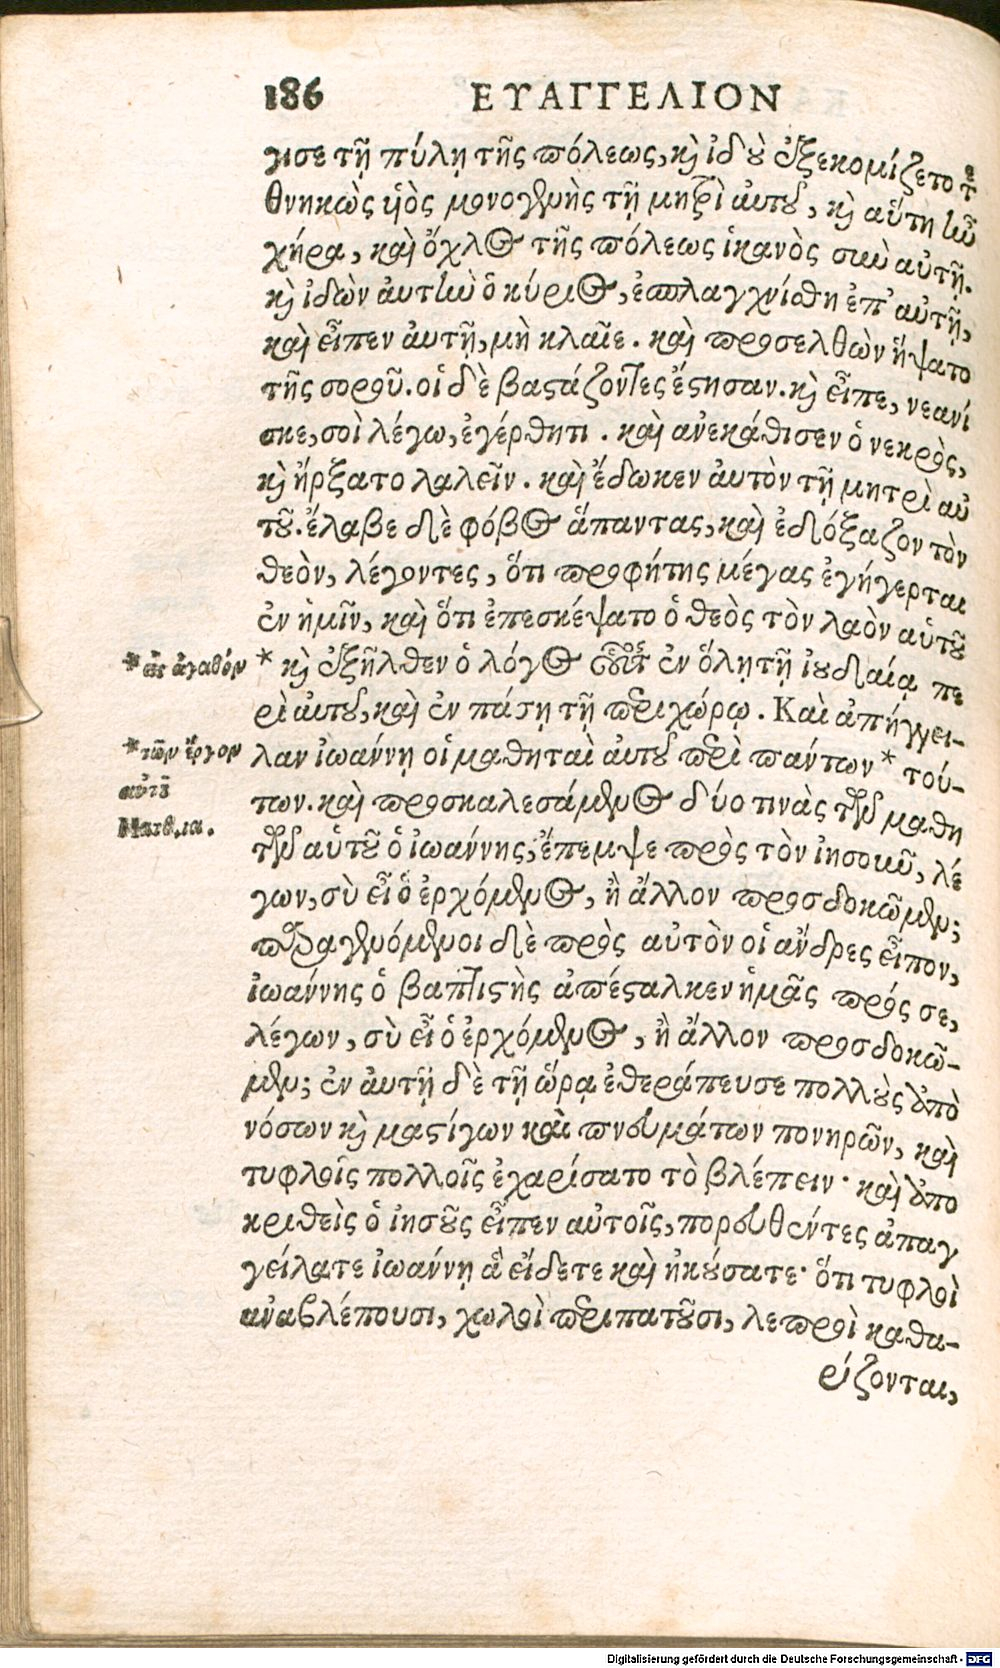 186 ΕΥΑΓΓΕΛΙΟΝ
γισε τῇ πύλῃ τῆς πόλεως, καὶ ἰδοὺ ἐξεκομίζετο τε
θνηκὼς υἱὸς μονογενὴς τῇ μητρὶ αὐτοῦ, καὶ αὕτη ἦν
χήρα, καὶ ὄχλος τῆς πόλεως ἱκανὸς σιὼ αὐτῇ.
καὶ ἰδὼν ἀυτὴν ὁ κύριος, ἐσπλαγχνίσθη ἐπ' αὐτῇ,
καὶ εἶπεν ἀυτῇ, μὴ κλαῖε. καὶ προσελθὼν ἥψατο
τῆς σοροῦ. οἱ δὲ βαστάζοντες ἔστησαν. καὶ εἶπε, νεανί
σκε, σοὶ λέγω, ἐγέρθητι. καὶ ἀνεκάθισεν ὁ νεκρὸς,
καὶ ἤρξατο λαλεῖν. καὶ ἔδωκεν ἀυτὸν τῇ μητρὶ αὐ
τοῦ. ἔλαβε δὲ φόβος ἅπαντας, καὶ ἐδόξαζον τὸν
θεὸν, λέγοντες, ὅτι προφήτης μέγας ἐγήγερται
ἐν ἡμῖν, καὶ ὅτι ἐπεσκέψατο ὁ θεὸς τὸν λαὸν αὑτοῦ
*εἰς ἀγαθόν * καὶ ἐξῆλθεν ὁ λόγος οὗτος ἐν ὅλῃ τῇ ἰουδαίᾳ πε
ρὶ ἀυτοῦ, καὶ ἐν πάσῃ τῇ περιχώρῳ. Καὶ ἀπήγγει-
*τῶν ἔργον λαν ἰωάννῃ οἱ μαθηταὶ ἀυτοῦ περὶ πάντων * τού-
αὐτοῦ των. καὶ προσκαλεσάμενος δύο τινὰς τῶν μαθη
τῶν αὑτοῦ ὁ ἰωάννης, ἔπεμψε πρὸς τὸν ἰησοῦν, λέ
γων, σὺ εἶ ὁ ἐρχόμενος, ἢ ἄλλον προσδοκῶμεν;
παραγενόμενοι δὲ πρὸς αὐτὸν οἱ ἄνδρες εἶπον,
ἰωάννης ὁ βαπτιστὴς ἀπέσταλκεν ἡμᾶς πρός σε,
λέγων, σὺ εἶ ὁ ἐρχόμενος, ἢ ἄλλον προσδοκῶ-
μεν; ἐν ἀυτῇ δὲ τῇ ὥρᾳ ἐθεράπευσε πολλοὺς ἀπὸ
νόσων καὶ μαστίγων καὶ πνευμάτων πονηρῶν, καὶ
τυφλοῖς πολλοῖς ἐχαρίσατο τὸ βλέπειν· καὶ ἀπο
κριθεὶς ὁ ἰησοῦς εἶπεν αὐτοῖς, πορευθέντες ἀπαγ
γείλατε ἰωάννῃ ἃ εἴδετε καὶ ἠκούσατε· ὅτι τυφλοὶ
ἀναβλέπουσι, χωλοὶ περιπατοῦσι, λεπροὶ καθα-
ρίζονται,
Digitalisierung gefördert durch die Deutsche Forschungsgemeinschaft - DFG